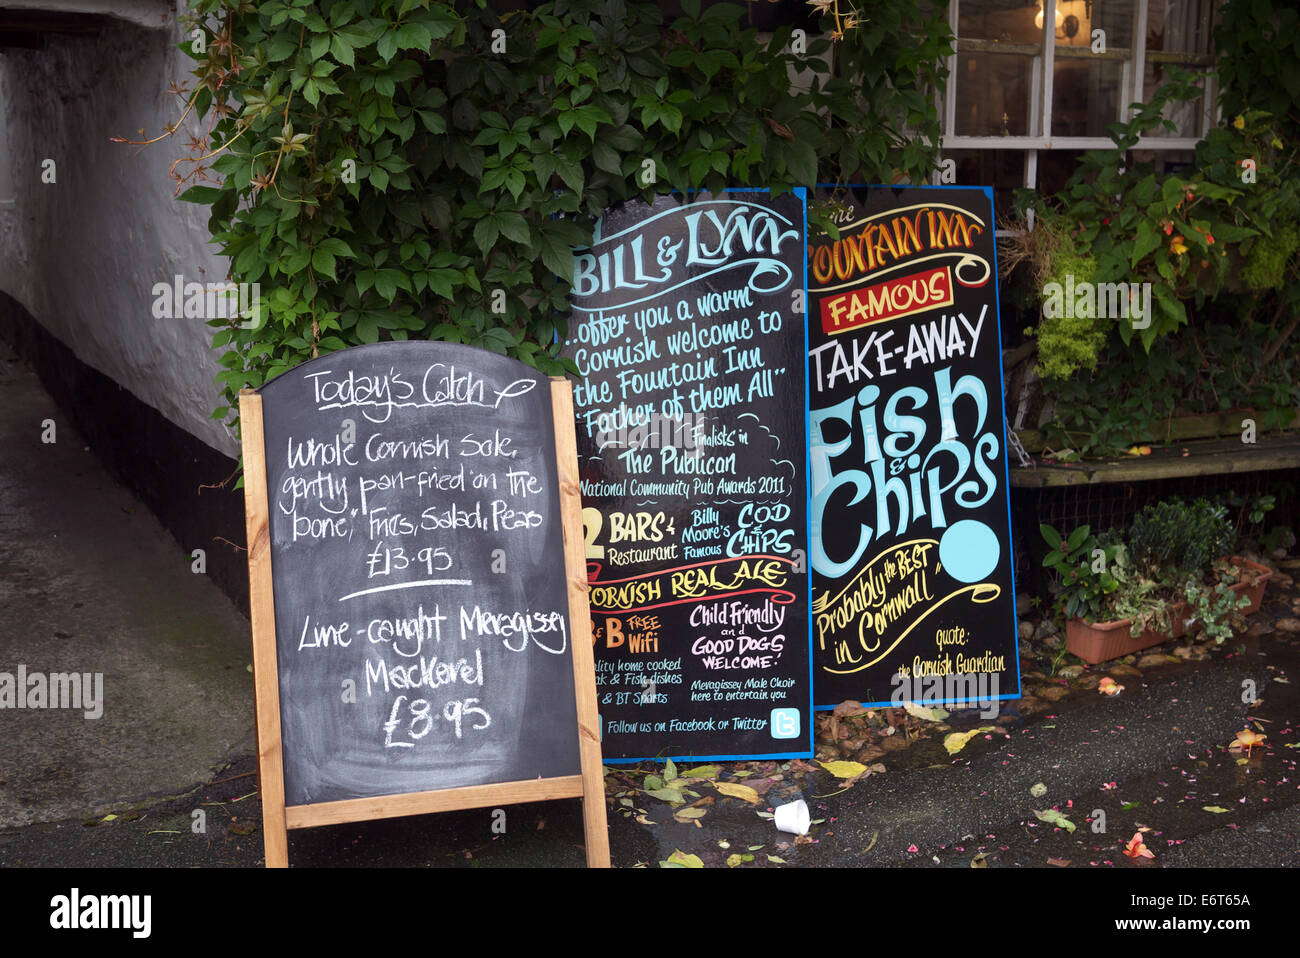 Today's Catch
Whole Cornish Sole,
gently pan-fried "on the
bone," Fries, Salad, Peas
£13.95
Line-caught Mevagissey
Mackerel
£8.95
BILL & LYNN
...offer you a warm
Cornish welcome to
the Fountain Inn
"Father of them All"
Finalists in
The Publican
National Community Pub Awards 2011
2 BARS &
Restaurant
Billy
Moore's
Famous
COD
&
CHIPS
CORNISH REAL ALE
B & B FREE
Wifi
Child Friendly
and
GOOD DOGS
WELCOME!
home cooked
& Fish dishes
& BT Sports
Mevagissey Male Choir
here to entertain you
Follow us on Facebook or Twitter
t
FOUNTAIN INN
FAMOUS
TAKE-AWAY
Fish
&
Chips
"Probably the BEST
in Cornwall"
quote:
the Cornish Guardian
alamy
alamy
Image ID: E6T65A
www.alamy.com